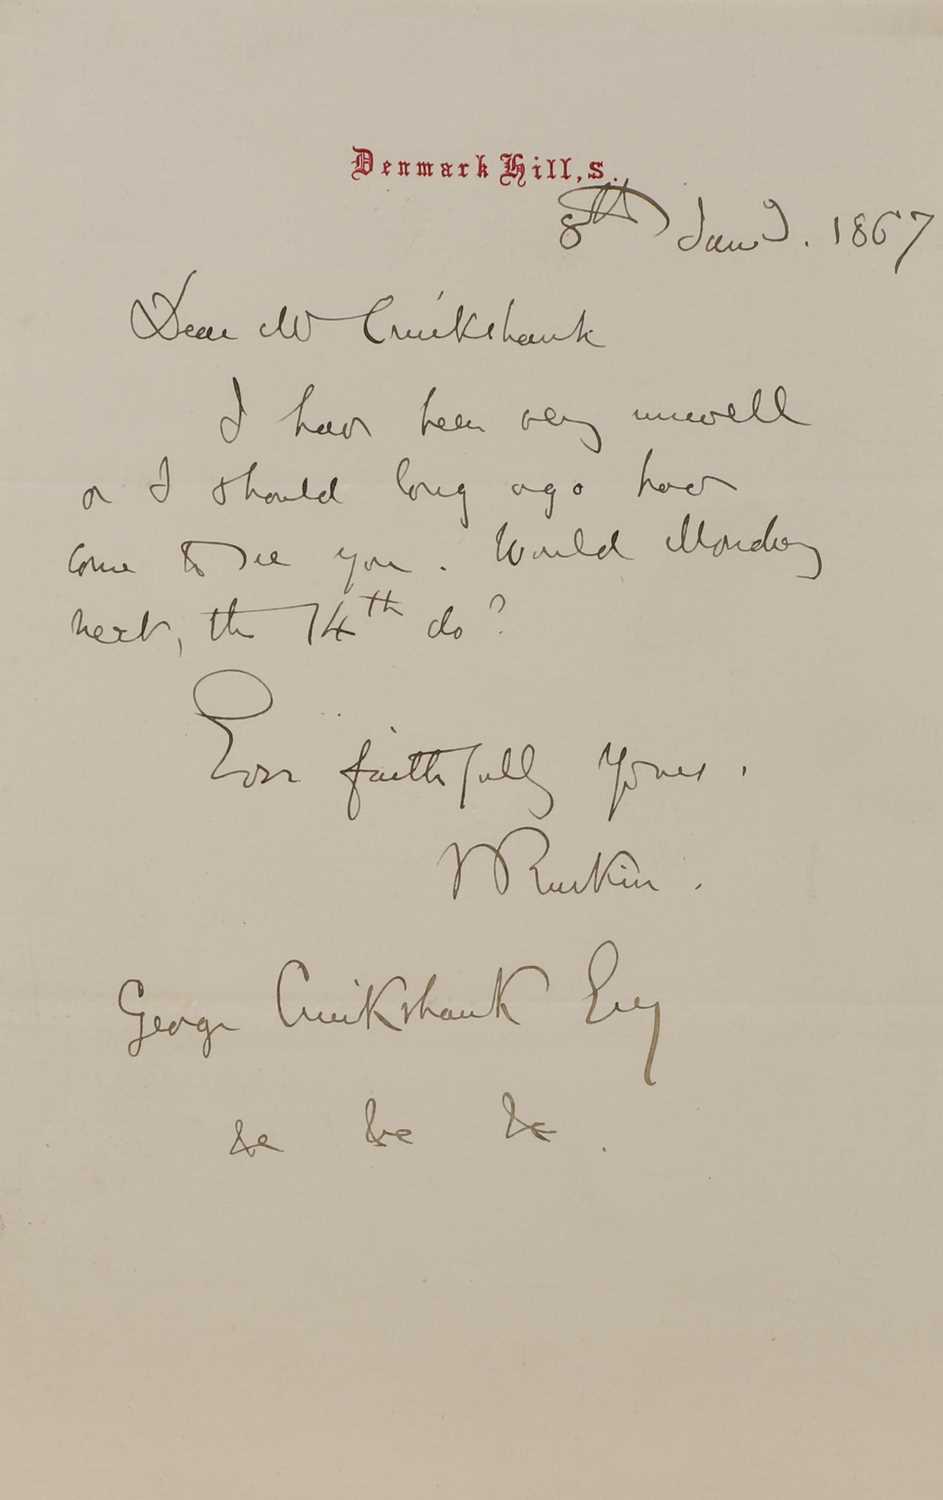 Denmark Hill, S.
8th Jany. 1867
Dear Mr Cruikshank
I have been very unwell
or I should long ago have
come to see you. Would Monday
next, the 14th do?
Ever faithfully Yours.
J Ruskin.
George Cruikshank Esq
&c &c &c.